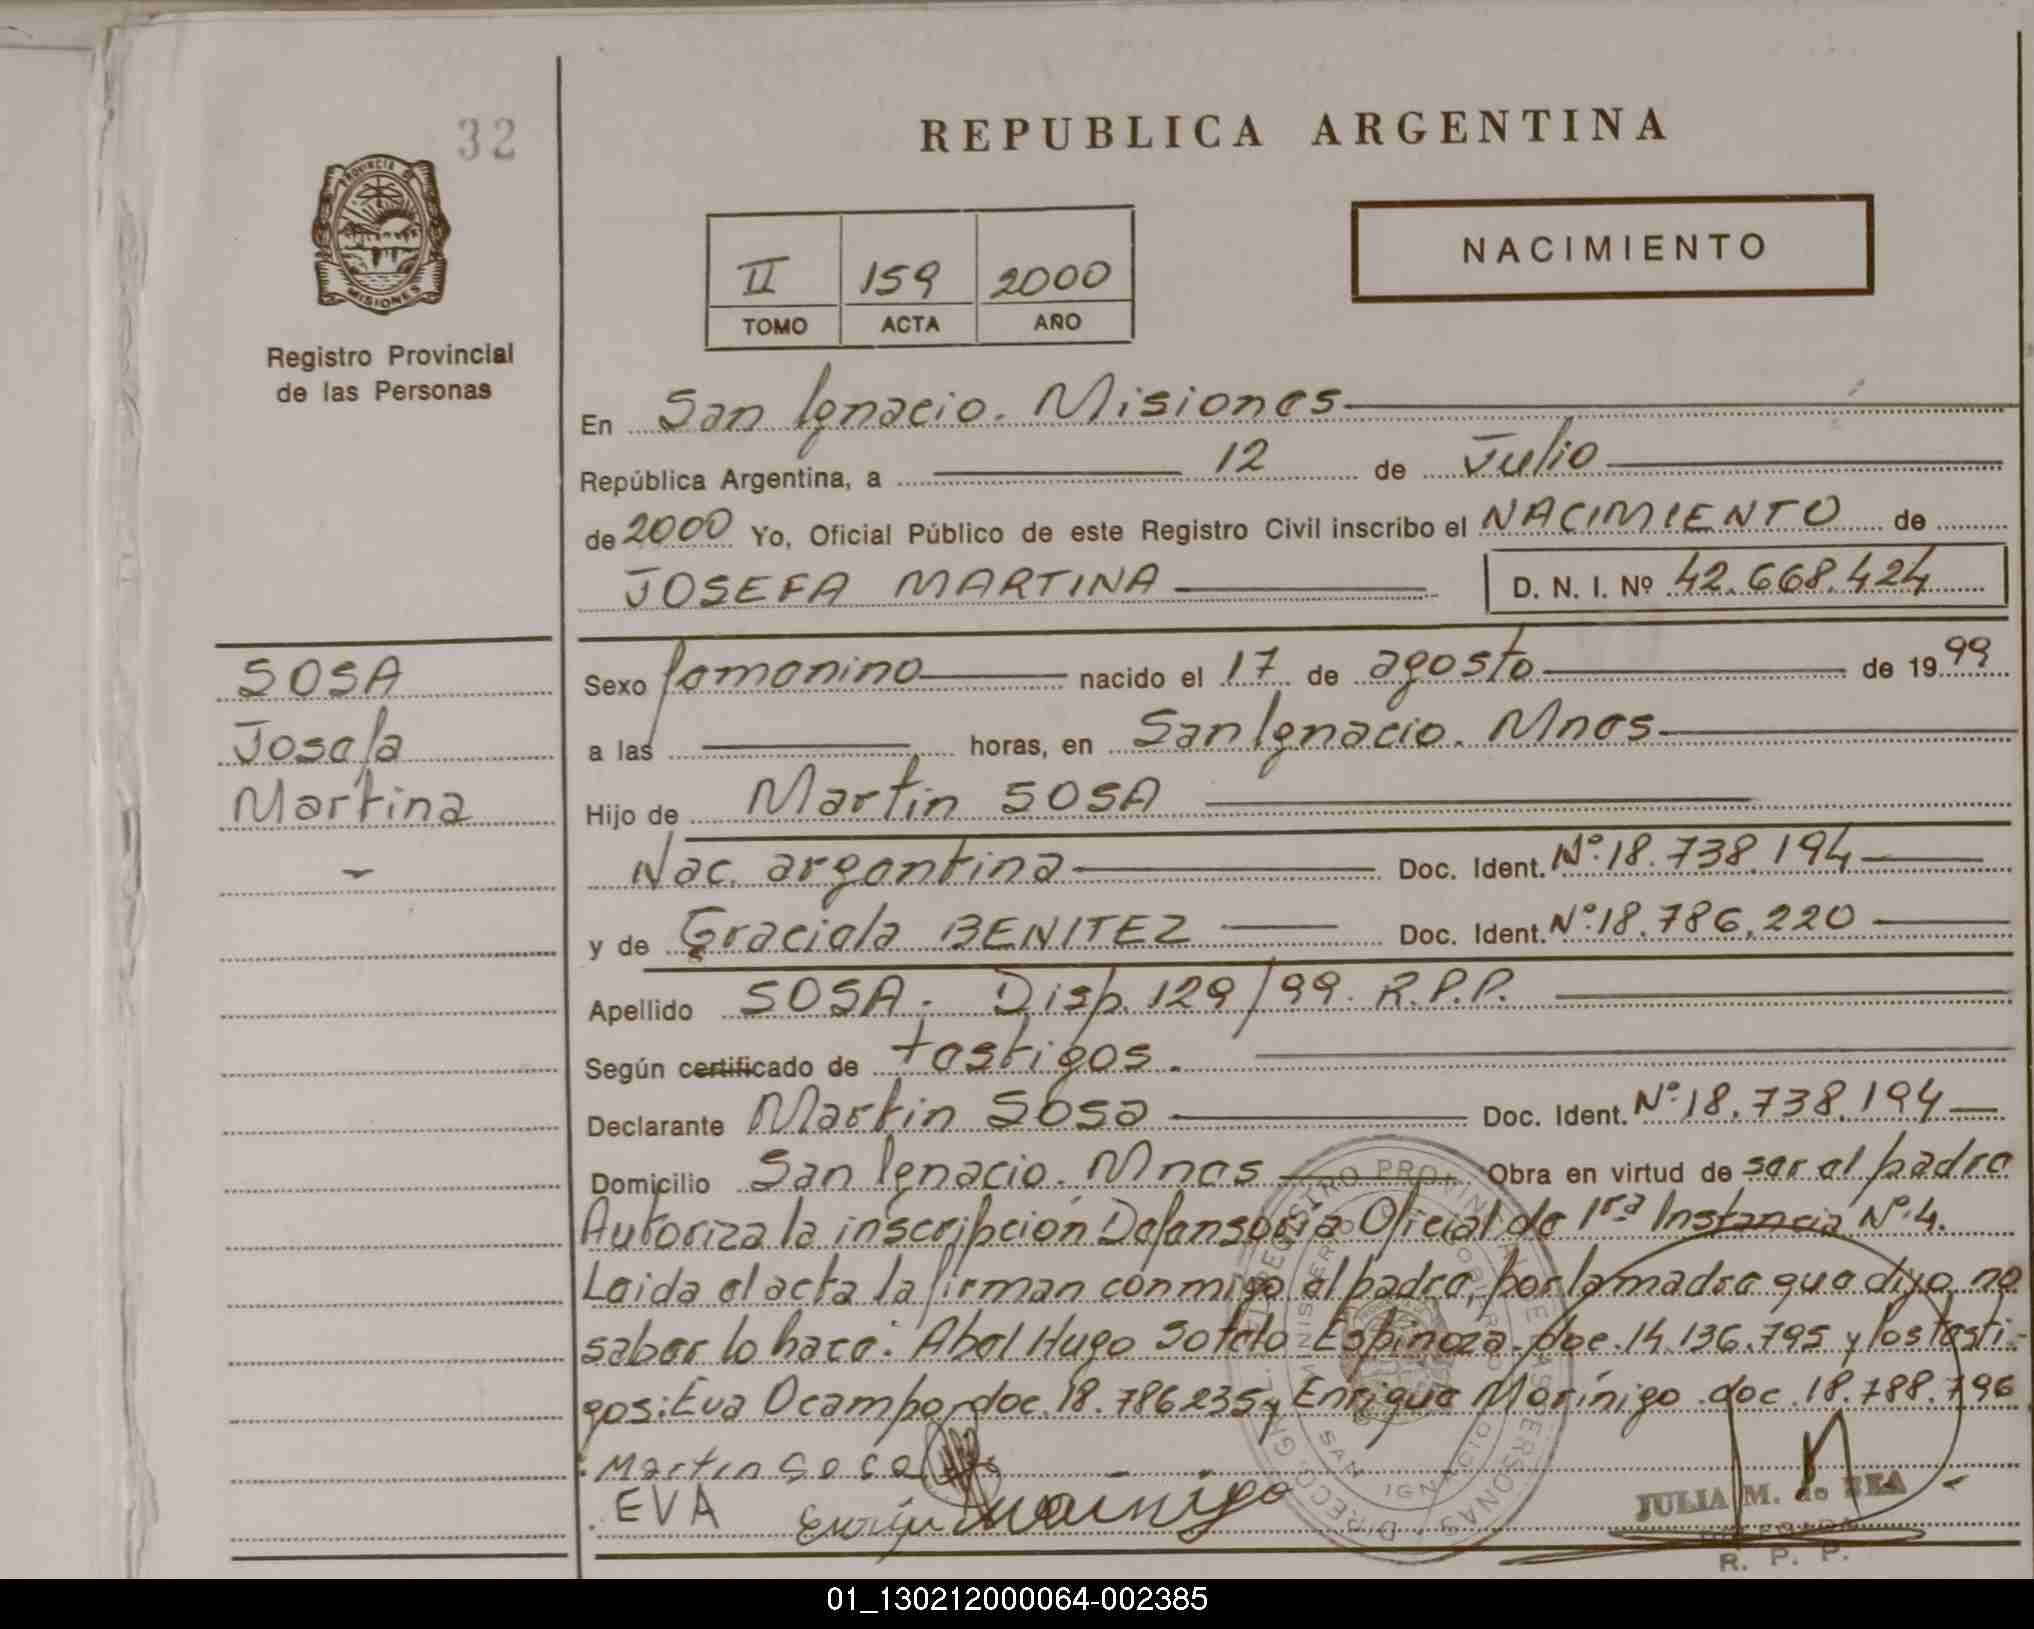 32
PROVINCIA DE
MISIONES
Registro Provincial
de las Personas
REPUBLICA ARGENTINA
II 159 2000
TOMO ACTA AÑO
NACIMIENTO
En San Ignacio. Misiones
República Argentina, a 12 de Julio
de 2000 Yo, Oficial Público de este Registro Civil inscribo el NACIMIENTO de
JOSEFA MARTINA D. N. I. Nº 42.668.424
SOSA
Josefa
Martina
Sexo femenino nacido el 17 de agosto de 1999
a las horas, en San Ignacio. Mnes
Hijo de Martin SOSA
Nac. argentina Doc. Ident. Nº 18.738.194
y de Graciela BENITEZ Doc. Ident. Nº 18.786.220
Apellido SOSA. Disp. 129/99. R.P.P.
Según certificado de testigos.
Declarante Martin Sosa Doc. Ident. Nº 18.738.194
Domicilio San Ignacio. Mnes Obra en virtud de ser el padre
Autoriza la inscripción Defensoría Oficial de 1ra Instancia Nº 4.
Leida el acta la firman conmigo el padre, por la madre que dijo no
saber lo hace: Abel Hugo Sotelo Espinoza. doc. 14.136.795 y los testi-
gos: Eva Ocampo, doc. 18.786235 y Enrique Morínigo. doc. 18.788.796
Martin Sosa
EVA
JULIA M. de
R. P. P.
01_130212000064-002385